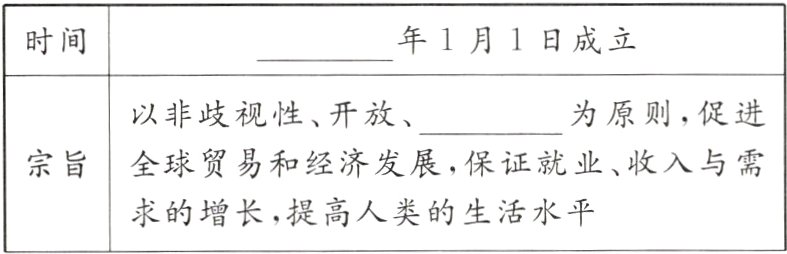 时间
________年1月1日成立
宗旨
以非歧视性、开放、________为原则,促进
全球贸易和经济发展,保证就业、收入与需
求的增长,提高人类的生活水平